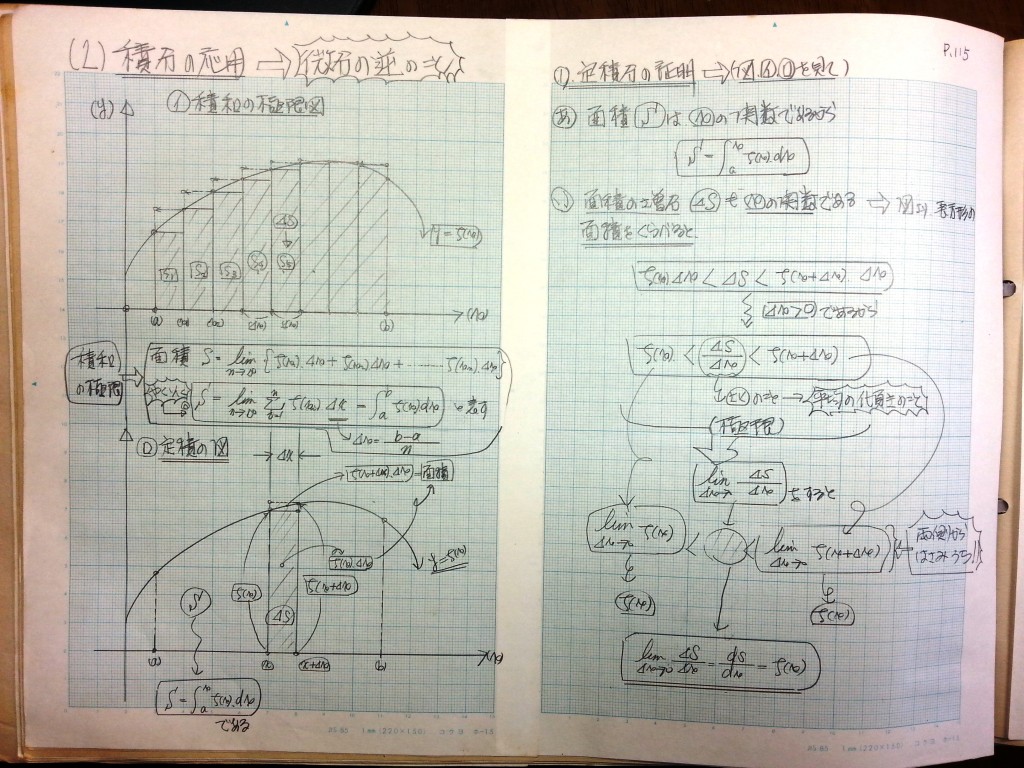 (2) 積分の応用 ⇒ 微分の逆のこと
(y)
① 積和の極限図
ΔS
y = f(x)
S₁ S₂ S₃ S₄ S₅
(a) (x₁) (x₂) (Δx) (Δx) (b) (x)
積和の極限
面積 S = lim n→∞ {f(x₁)·Δx + f(x₂)Δx + …… f(xₙ)·Δx}
S = lim n→∞ Σ f(xₖ) Δx = ∫ₐᵇ f(x)dx で表す
Δx = b-a/n
② 定積の図
Δx
f(x+Δx)·Δx = 面積
f(x)·Δx
y = f(x)
f(x)
f(x+Δx)
S
ΔS
(a) (x) (x+Δx) (b) (x)
S = ∫ₐˣ f(x)·dx
である
AS-85 1mm(220×150) コクヨ ホ-15
P.115
定積分の証明 ⇒ (図①②を見て)
あ 面積 S は (x)の関数であるから
S = ∫ₐˣ f(x)·dx
い 面積の増分 ΔS も (x)の関数である ⇒ 図より
面積をくらべると
f(x)Δx < ΔS < f(x+Δx)·Δx
(Δx>0)であるから
f(x) < (ΔS/Δx) < f(x+Δx)
のこと → 平均の のこと
(極限)
lim Δx→0 ΔS/Δx とすると
lim Δx→0 f(x) < < lim Δx→0 f(x+Δx)
両側から
はさみうち
f(x)
f(x)
lim Δx→0 ΔS/Δx = dS/dx = f(x)
AS-85 1mm(220×150) コクヨ ホ-15